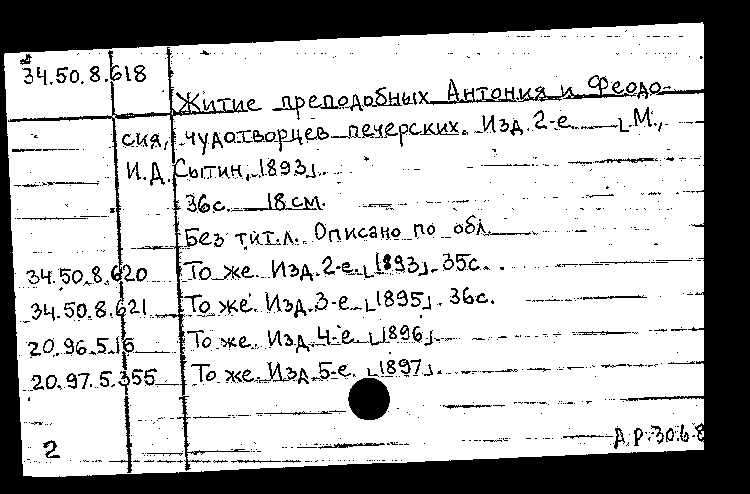 34.50.8.618
Житие преподобных Антония и Феодо-
сия, чудотворцев печерских. Изд. 2-е ⌊М.,
И.Д. Сытин, 1893⌋.
36с. 18 см.
Без тит.л. Описано по обл.
34.50.8.620 То же. Изд. 2-е. ⌊1893⌋. 35с.
34.50.8.621 То же. Изд. 3-е. ⌊1895⌋. 36с.
20.96.5.15 То же. Изд. 4-е. ⌊1896⌋.
20.97.5.355 То же. Изд. 5-е. ⌊1897⌋.
2